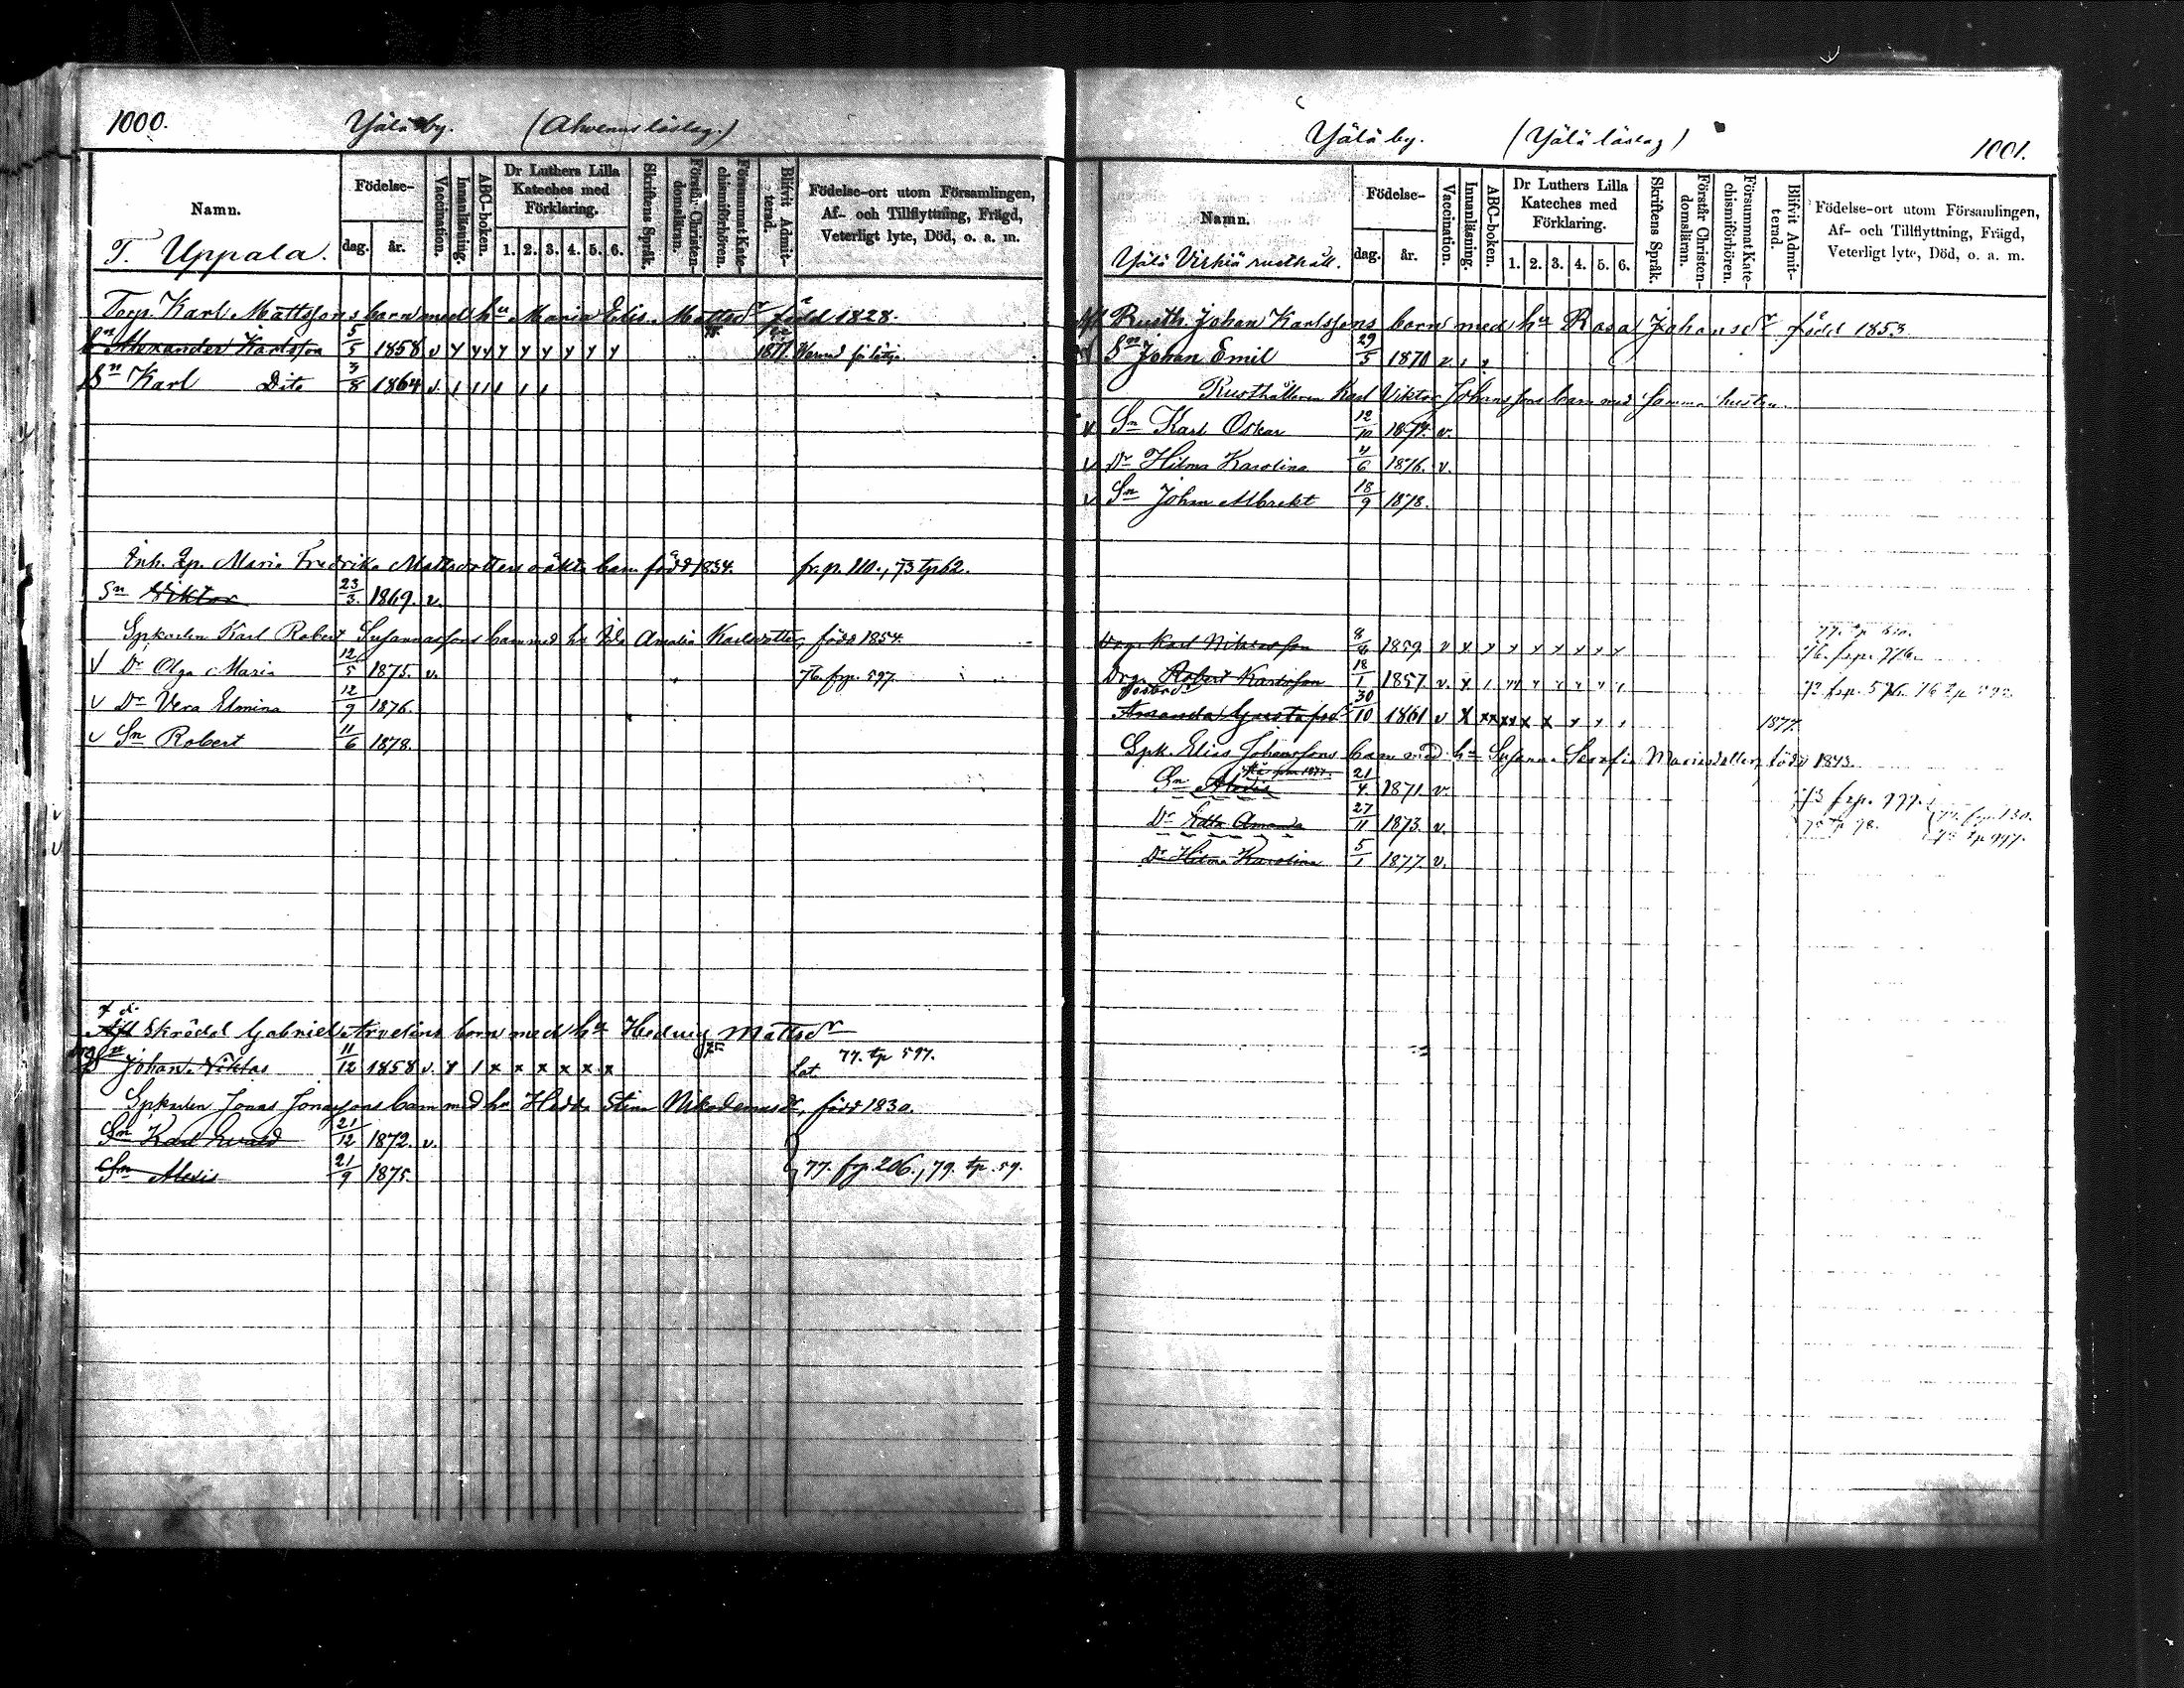 1000. Yälä by.
Namn.
Födelse-
dag. år.
Vaccination.
Innanläsning.
ABC-boken.
Dr Luthers Lilla Kateches med Förklaring.
1. 2. 3. 4. 5. 6.
Skriftens Språk.
Förstår Christendomsläran.
Försummat Katechismiförhören.
Blifvit Admitterad.
Födelse-ort utom Församlingen, Af- och Tillflyttning, Frägd, Veterligt lyte, Död, o. a. m.
T. Uppala.
Torp. Karl Mattssons barn med hu Maria Elis. Mattsdr född 1828.
Sn Alexander Karlsson 5/5 1858 v 1877.
Sn Karl Dito 3/8 1864 v.
Inh. Maria Fredrika Mattsdotters oäkta barn född 1834. fr. p. 110., 73 tp 62.
Sn Viktor 23/3. 1869. v.
Spkarlen Karl Robert Susannassons barn med hu Ida Amalia Karlsdotter, född 1854.
v Dr Olga Maria 12/5 1875. v. 76. frp. 597.
v Dr Vera Elmina 12/9 1876.
v Sn Robert 11/6 1878.
Skräddl Gabriel Arvelins barn med hu Hedvig Mattsdr
Sn Johan Niklas 11/12 1858 v. x x x x x x 77. tp 597.
Spkarlen Jonas Jonassons barn med hu Hedda Stina Nikodemusdr, född 1830.
Sn Karl Evald 21/12 1872. v.
Sn Alexis 21/9 1875. 77. frp. 206., 79. tp. 59.
Yälä by. (Yälä läslag) 1001.
Namn.
Födelse-
dag. år.
Vaccination.
Innanläsning.
ABC-boken.
Dr Luthers Lilla Kateches med Förklaring.
1. 2. 3. 4. 5. 6.
Skriftens Språk.
Förstår Christendomslämn.
Försummat Katechismiförhören.
Blifvit Admitterad.
Födelse-ort utom Församlingen, Af- och Tillflyttning, Frägd, Veterligt lyte, Död, o. a. m.
Yälä Virkiä rusthåll.
Rusth. Johan Karlssons barn med hu Rosa Johansdr född 1853
Sn Johan Emil 29/5 1870 v.
Rusthållaren Karl Viktor Johanssons barn med samma hustru
v Sn Karl Oskar 12/10 1874. v.
v Dr Hilma Karolina 4/6 1876. v.
v Sn Johan Albrekt 18/9 1878.
Drg. Karl 1859 v 76. frp. 776.
Drg. Robert Karlsson 18/1 1857 v.
Amanda Gustafsdr 30/10 1861 v 1877.
Spk. Elias Johanssons barn med hu Susanna Serafia Mariasdotter, född 1843.
Sn Alexis 21/4 1871 v.
Dr Edla Amanda 27/11 1873. v.
Dr Hilma Karolina 5/1 1877. v.